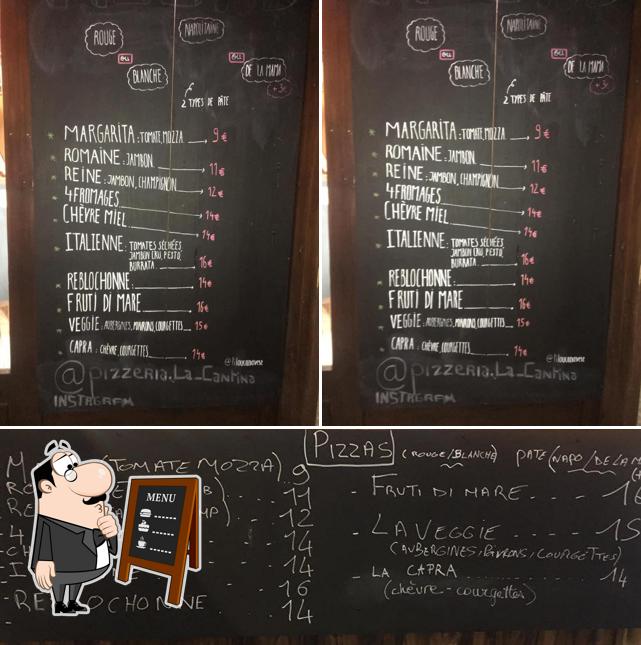 ROUGE
NAPOLITAINE
ou
ou
BLANCHE
DE LA MAMA
+3€
2 TYPES DE PÂTE
MARGARITA : TOMATE, MOZZA 9€
ROMAINE : JAMBON 11€
REINE : JAMBON, CHAMPIGNON 12€
4 FROMAGES 14€
CHÈVRE MIEL 14€
ITALIENNE : TOMATES SÉCHÉES
JAMBON CRU, PESTO,
BURRATA 16€
REBLOCHONNE 14€
FRUTI DI MARE 16€
VEGGIE : AUBERGINES, POIVRONS, COURGETTES 15€
CAPRA : CHÈVRE, COURGETTES 14€
@pizzeria.La_Cantina
INSTAGRAM
ROUGE
NAPOLITAINE
ou
ou
BLANCHE
DE LA MAMA
+3€
2 TYPES DE PÂTE
MARGARITA : TOMATE, MOZZA 9€
ROMAINE : JAMBON 11€
REINE : JAMBON, CHAMPIGNON 12€
4 FROMAGES 14€
CHÈVRE MIEL 14€
ITALIENNE : TOMATES SÉCHÉES
JAMBON CRU, PESTO,
BURRATA 16€
REBLOCHONNE 14€
FRUTI DI MARE 16€
VEGGIE : AUBERGINES, POIVRONS, COURGETTES 15€
CAPRA : CHÈVRE, COURGETTES 14€
@pizzeria.La_Cantina
INSTAGRAM
PIZZAS (ROUGE/BLANCHE) PATE (NAPO/DE LA M
(TOMATE MOZZA) 9
11
12
14
14
16
14
MENU
- FRUTI DI MARE
- LA VEGGIE 15
(AUBERGINES, POIVRONS, COURGETTES)
- LA CAPRA 14
(chèvre - courgettes)